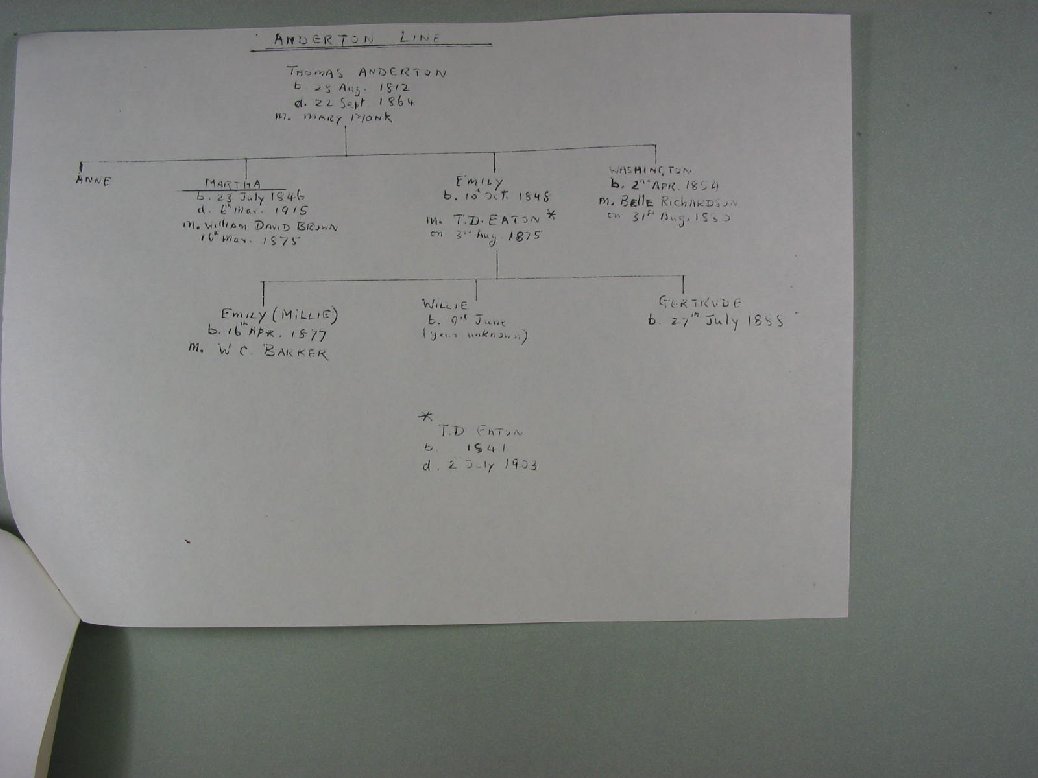 ANDERTON LINE
THOMAS ANDERTON
b. 25 Aug. 1812
d. 22 Sept 1864
m. MARY MONK
ANNE
MARTHA
b. 23 July 1846
d. 6th Mar. 1915
m. William David Brown
16th Mar. 1875
EMILY
b. 10th Oct. 1848
m. T.D. EATON *
on 3rd Aug. 1875
WASHINGTON
b. 2nd APR. 1854
m. Belle RICHARDSON
on 31st Aug.
EMILY (MILLIE)
b. 16th APR. 1877
m. W C. BARKER
WILLIE
b. 9th June
(year unknown)
GERTRUDE
b. 27th July
*
T.D EATON
b. 1841
d. 2 July 1903